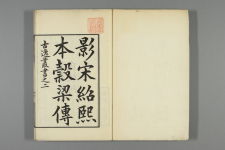 影宋紹熙
本穀梁傳
古逸叢書之二